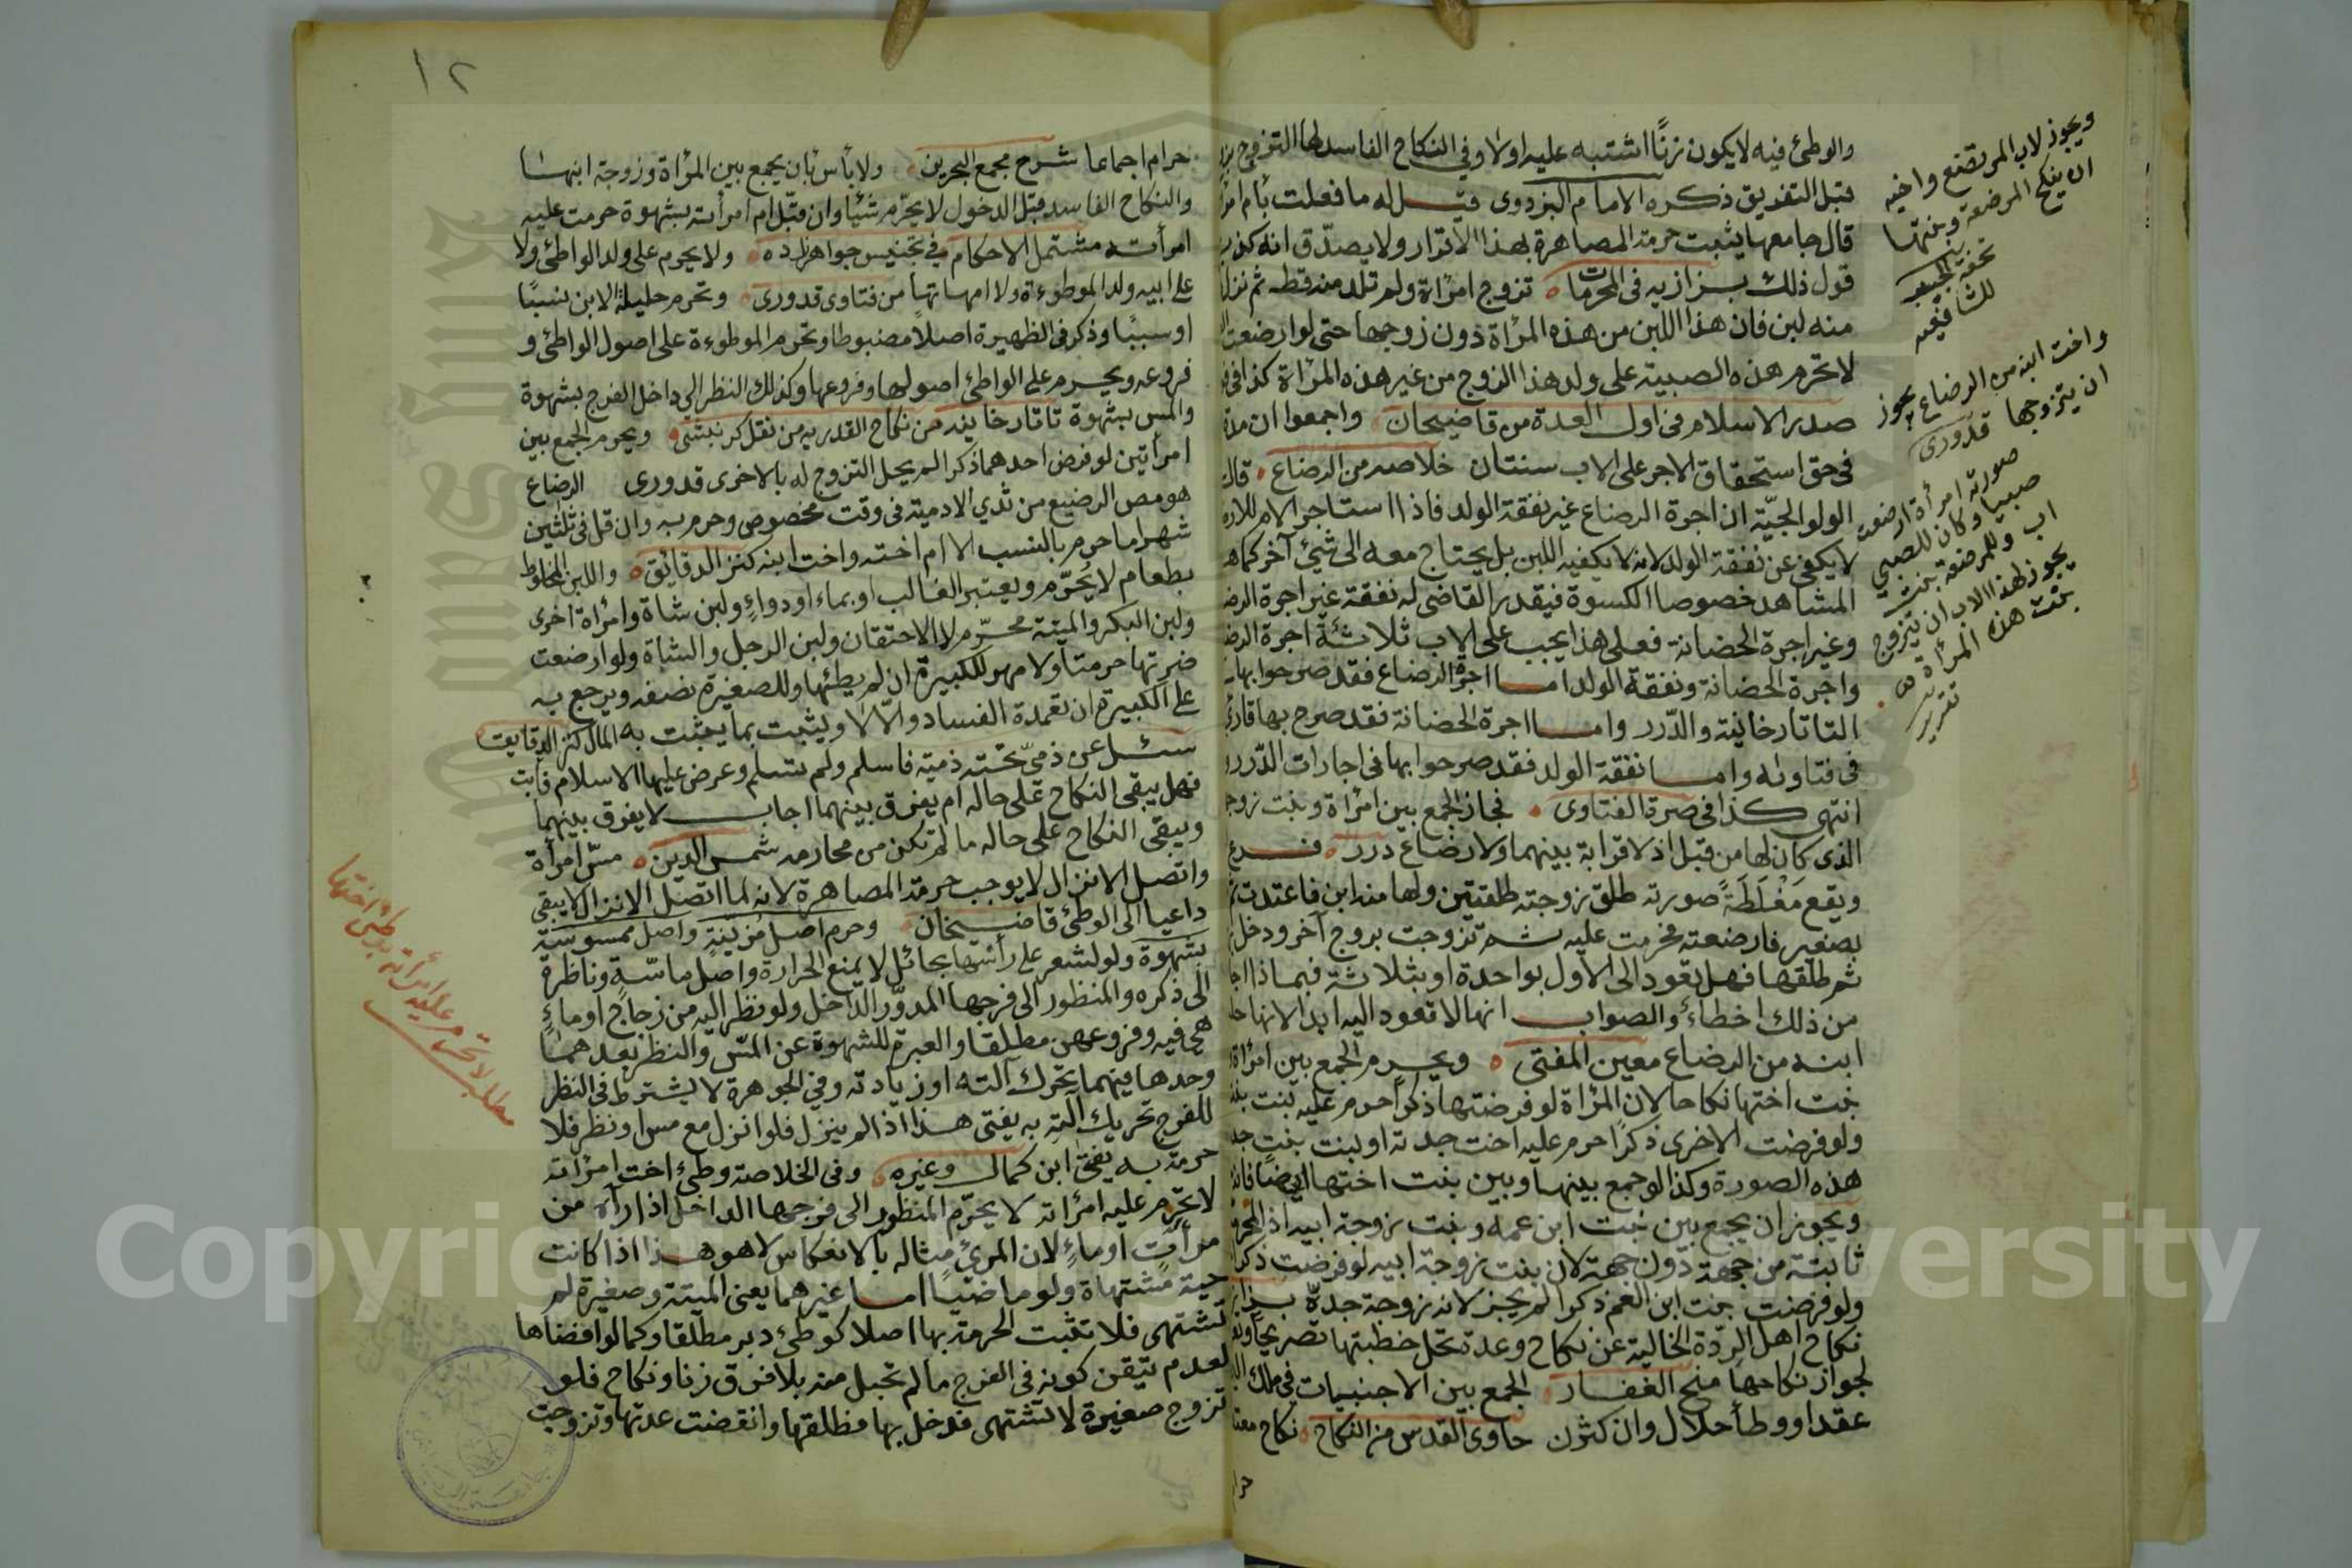 والوطئ فيه لا يكون زنًا اشتبه عليه اولا وفي النكاح الفاسد لها التزوج
قبل التفريق ذكره الامام البزدوى قيل له ما فعلت بأم
قال جامعها يثبت حرمة المصاهرة بهذا الاقرار ولا يصدّق انه كذب
قول ذلك بزازيه فى المحرمات تزوج امرأة ولم تلد منه قط ثم نزل
منه لبن فان هذا اللبن من هذه المرأة دون زوجها حتى لو ارضعت
لا تحرم هذه الصبية على ولد هذا الزوج من غير هذه المرأة كذا فى
صدر الاسلام فى اول العدة من قاضيخان واجمعوا ان مدة
فى حق استحقاق الاجر على الاب سنتان خلاصه من الرضاع قال
الولوالجيّة ان اجرة الرضاع غير نفقة الولد فاذا استاجر الام للارضاع
لا يكفى عن نفقة الولد لانه لا يكفيه اللبن بل يحتاج معه الى شئ آخر كما هو
المشاهد خصوصا الكسوة فيقدر القاضى له نفقة غير اجرة
وغير اجرة الحضانة فعلى هذا يجب على الاب ثلاثة اجرة
واجرة الحضانة ونفقة الولد اما اجرة الرضاع فقد صرحوا بها
التاتارخانية والدّرر واما اجرة الحضانة فقد صرح بها قارئ
فى فتاوىه واما نفقة الولد فقد صرحوا بها فى اجارات الدّرر
انتهى كذا فى صرة الفتاوى فجاز الجمع بين امرأة وبنت زوج
الذى كان لها من قبل اذ لا قرابة بينهما ولا رضاع درر فرع
ويقع مَغْلَطَةً صورته طلق زوجته طلقتين ولها منه ابن فاعتدت
بصغير فارضعته فحرمت عليه ثم تزوجت بزوج آخر ودخل
ثم طلقها فهل تعود الى الاول بواحدة او بثلاثة فبماذا
من ذلك اخطاء والصواب انها لا تعود اليه ابدا لانها
ابنه من الرضاع معين المفتى ويحرم الجمع بين امرأة
بنت اختها نكاحا لان المرأة لو فرضتها ذكرا حرم عليه بنت
ولو فرضت الاخرى ذكرًا حرم عليه اخت جدته او لبنت بنت
هذه الصورة وكذا لو جمع بينها وبين بنت اختها ايضا
ويجوز ان يجمع بين بنت ابن عمه وبنت زوجة ابيه اذ
ثابتة من جهة دون جهة لان بنت زوجة ابيه لو فرضت ذكرا
ولو فرضت بنت ابن العم ذكرا لم يجز لانه زوجة جدّه
نكاح اهل الردّة الخالية عن نكاح وعدة تحل خطبتها تصريحا
لجواز نكاحها منح الغفار الجمع بين الاجنبيات فى ملك
عقدا ووطأ حلال وان كثرن حاوى القدس من النكاح نكاح
ويجوز لاب المرتضع واخيه
ان ينكح المرضعة وبنتها
للشافعيه
واخت ابنه من الرضاع يجوز
ان يتزوجها قدورى
صورته امرأة ارضعت
صبيا وكان للصبي
اب وللمرضعة بنت
يجوز لهذا الاب ان يتزوج
بنت هذه المرأة
١٢
حرام اجماعا شرح مجمع البحرين ولا بأس بأن يجمع بين المرأة وزوجة ابنها
والنكاح الفاسد قبل الدخول لا يحرّم شيئا وان قبّل ام امرأته بشهوة حرمت عليه
امرأته مشتمل الاحكام فى تجنيس جواهر ولا يحرم على ولد الواطئ ولا
على ابيه ولد الموطوءة ولا امهاتها من فتاوى قدورى وتحرم حليلة الابن نسبًا
او سببًا وذكر فى الظهيرة اصلا مضبوطا وتحرم الموطوءة على اصول الواطئ و
فروعه ويحرم على الواطئ اصولها وفروعها وكذلك النظر الى داخل الفرج بشهوة
والمس بشهوة تاتارخانيه من نكاح القدريه من نقل ويحرم الجمع بين
امرأتين لو فرض احدهما ذكرا لم يحل التزوج له بالاخرى قدورى الرضاع
هو مص الرضيع من ثدي الادمية فى وقت مخصوص وحرم به وان قل فى ثلثين
شهرا ما حرم بالنسب الا ام اخته واخت ابنه كنز الدقائق واللبن المخلوط
بطعام لا يُحَرِّم ويعتبر الغالب او بماء او دواءٍ ولبن شاة وامرأة اخرى
ولبن البكر والميتة محرّم لا الاحتقان ولبن الرجل والشاة ولو ارضعت
ضرتها حرمتا ولا مهر للكبيرة ان لم يطئها وللصغيرة نصفه ويرجع به
على الكبيرة ان تعمدت الفساد والّا لا ويثبت بما يثبت به المال كنز الدقايق
سئل عن ذمىّ تحته ذمية فاسلم ولم تسلم وعرض عليها الاسلام فأبت
فهل يبقى النكاح على حاله ام يفرق بينهما اجاب لا يفرق بينهما
ويبقى النكاح على حاله ما لم تكن من محارمه شمس الدين مسّ امرأة
واتصل الانزال لا يوجب حرمة المصاهرة لانه لما اتصل الانزال لا يبقى
داعيا الى الوطئ قاضيخان وحرم اصل مزنيّةٍ واصل ممسوسَة
بشهوة ولو لشعر على رأسها بحائل لا يمنع الحرارة واصل ماسّةٍ وناظرة
الى ذكره والمنظور الى فرجها المدوّر الداخل ولو نظر اليه من زجاج او ماءٍ
هى فيه وفروعهن مطلقا والعبرة للشهوة عن المسّ والنظر بعدهما
وحدها فيهما تحرك آلته او زيادته وفي الجوهرة لا يشترط فى النظر
للفرج تحريك آلته به يفتى هذا اذا لم ينزل فلو انزل مع مس او نظر فلا
حرمة به يفتى ابن كمال وغيره وفى الخلاصة وطئ اخت امرأته
لا تحرم عليه امرأته لا يحرّم المنظور الى فرجها الداخل اذا رآه من
مرآت او ماءٍ لان المرئ مثاله بالانعكاس لا هو هذا اذا كانت
حية مشتهاة ولو ماضيا اما غيرهما يعنى الميتة وصغيرة لم
تشتهى فلا تثبت الحرمة بها اصلا كوطئ دبر مطلقا وكما لو افضاها
لعدم تيقن كونه فى الفرج ما لم تحبل منه بلا فرق زنا ونكاح فلو
تزوج صغيرة لا تشتهى فدخل بها فطلقها وانقضت عدتها وتزوجت
مطلب لا تحرم عليه امرأته بوطئ اختها
Copyright © King Saud University